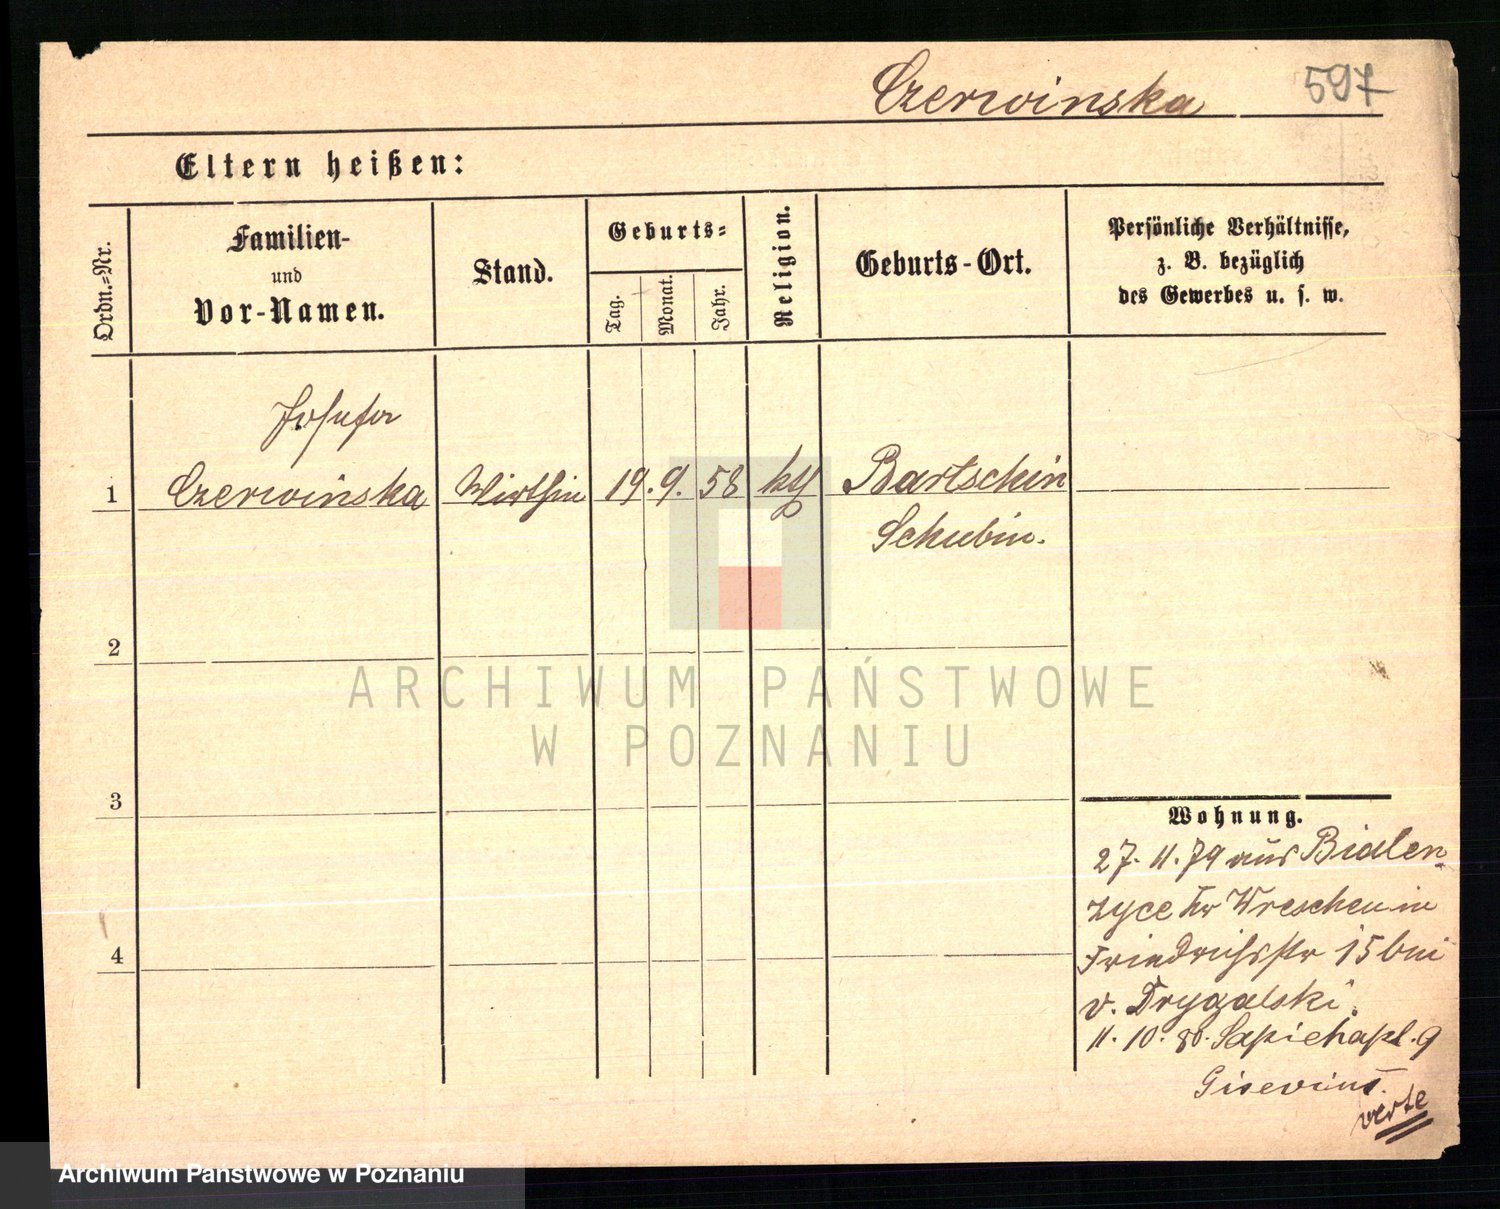 Czerwinska 597
Eltern heißen:
Ordn.=Nr.
Familien-
und
Vor-Namen.
Stand.
Geburts=
Tag.
Monat.
Jahr.
Religion.
Geburts-Ort.
Persönliche Verhältnisse,
z. B. bezüglich
des Gewerbes u. s. w.
Josefa
1 Czerwinska Wirthin 19. 9. 58 kth Bartschin
Schubin.
2
3
4
Wohnung.
27. 11. 79 aus Bialen-
zyce Kr Wreschen in
Friedrichsstr 15 bei
v. Drygalski.
11. 10. 80. Sapiehapl. 9
Gisevius.
verte
ARCHIWUM PAŃSTWOWE
W POZNANIU
Archiwum Państwowe w Poznaniu